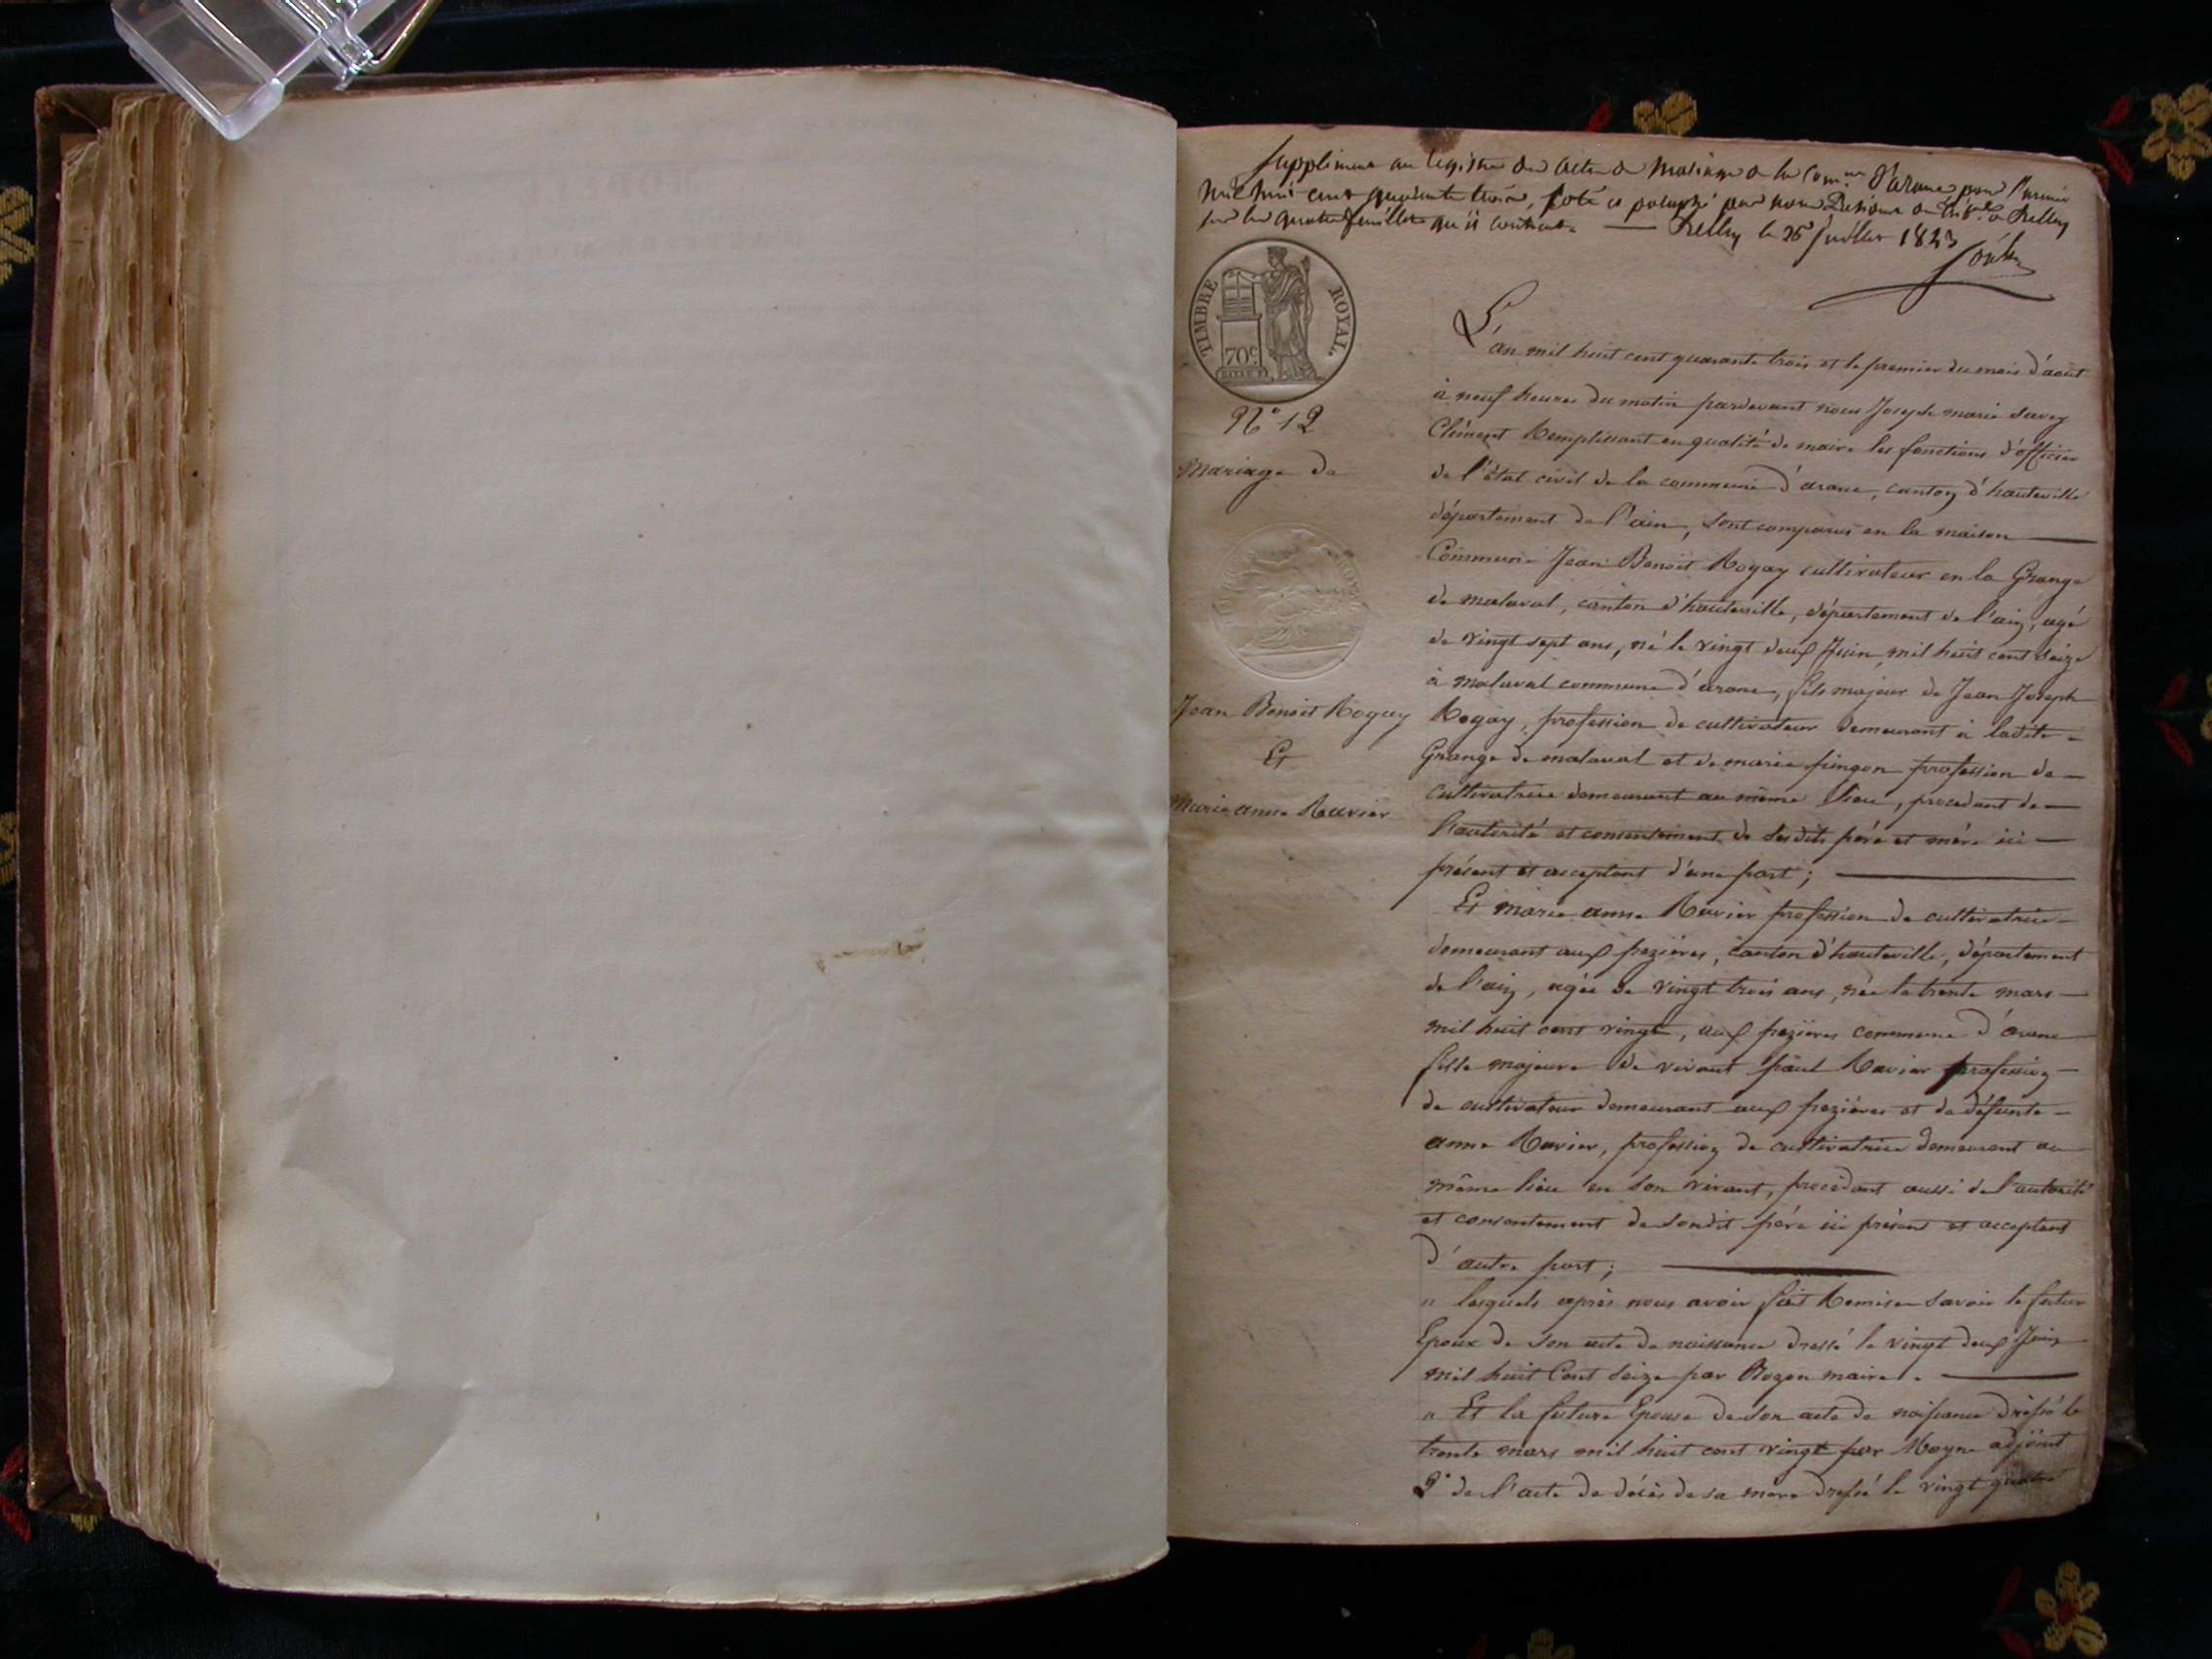 Supplément au registre des actes de mariage de la Com.ne d'arane pour l'année
mil huit cent quarante trois, coté et paraphé par nous Président du Trib.al de Belley
sur les quatre feuillets qu'il contient. — Belley le 26 Juillet 1843
TIMBRE ROYAL
70c
L'an mil huit cent quarante trois et le premier du mois d'août
à neuf heures du matin pardevant nous Joseph marie Savey
N° 12
Clément Remplissant en qualité de maire les fonctions d'officier
Mariage de
de l'état civil de la commune d'arane, canton d'hauteville
département de l'ain, sont comparus en la maison —
Commune Jean Benoit Rogay cultivateur en la Grange
de malaval, canton d'hauteville, département de l'ain, agé
de vingt sept ans, né le vingt deux Juin mil huit cent seize
à malaval commune d'arane, fils majeur de Jean Joseph
Jean Benoit Rogay
Rogay, profession de cultivateur demeurant à ladite -
Et
Grange de malaval et de marie pingon profession de —
Marie anne Ravier
cultivatrice demeurant au même lieu, procedant de —
l'autorité et consentement de sesdits père et mère ici —
présent et acceptant d'une part ; —
Et marie anne Ravier profession de cultivatrice -
demeurant aux pezières, canton d'hauteville, département
de l'ain, agée de vingt trois ans, née le trente mars —
mil huit cent vingt, aux pezières commune d'arane
fille majeure de vivant paul Ravier profession —
de cultivateur demeurant aux pezières et de défunte -
anne Ravier, profession de cultivatrice demeurant au
même lieu en son vivant, procedant aussi de l'autorité
et consentement de sondit père ici présent et acceptant
d'autre part ; —
" lesquels après nous avoir fait Remise savoir le futur
Epoux de son acte de naissance dressé le vingt deux Juin
mil huit Cent seize par Rogon maire. —
" Et la future Epouse de son acte de naissance dressé le
trente mars mil huit cent vingt par Moyne adjoint
2° de l'acte de décès de sa mère dressé le vingt quatre